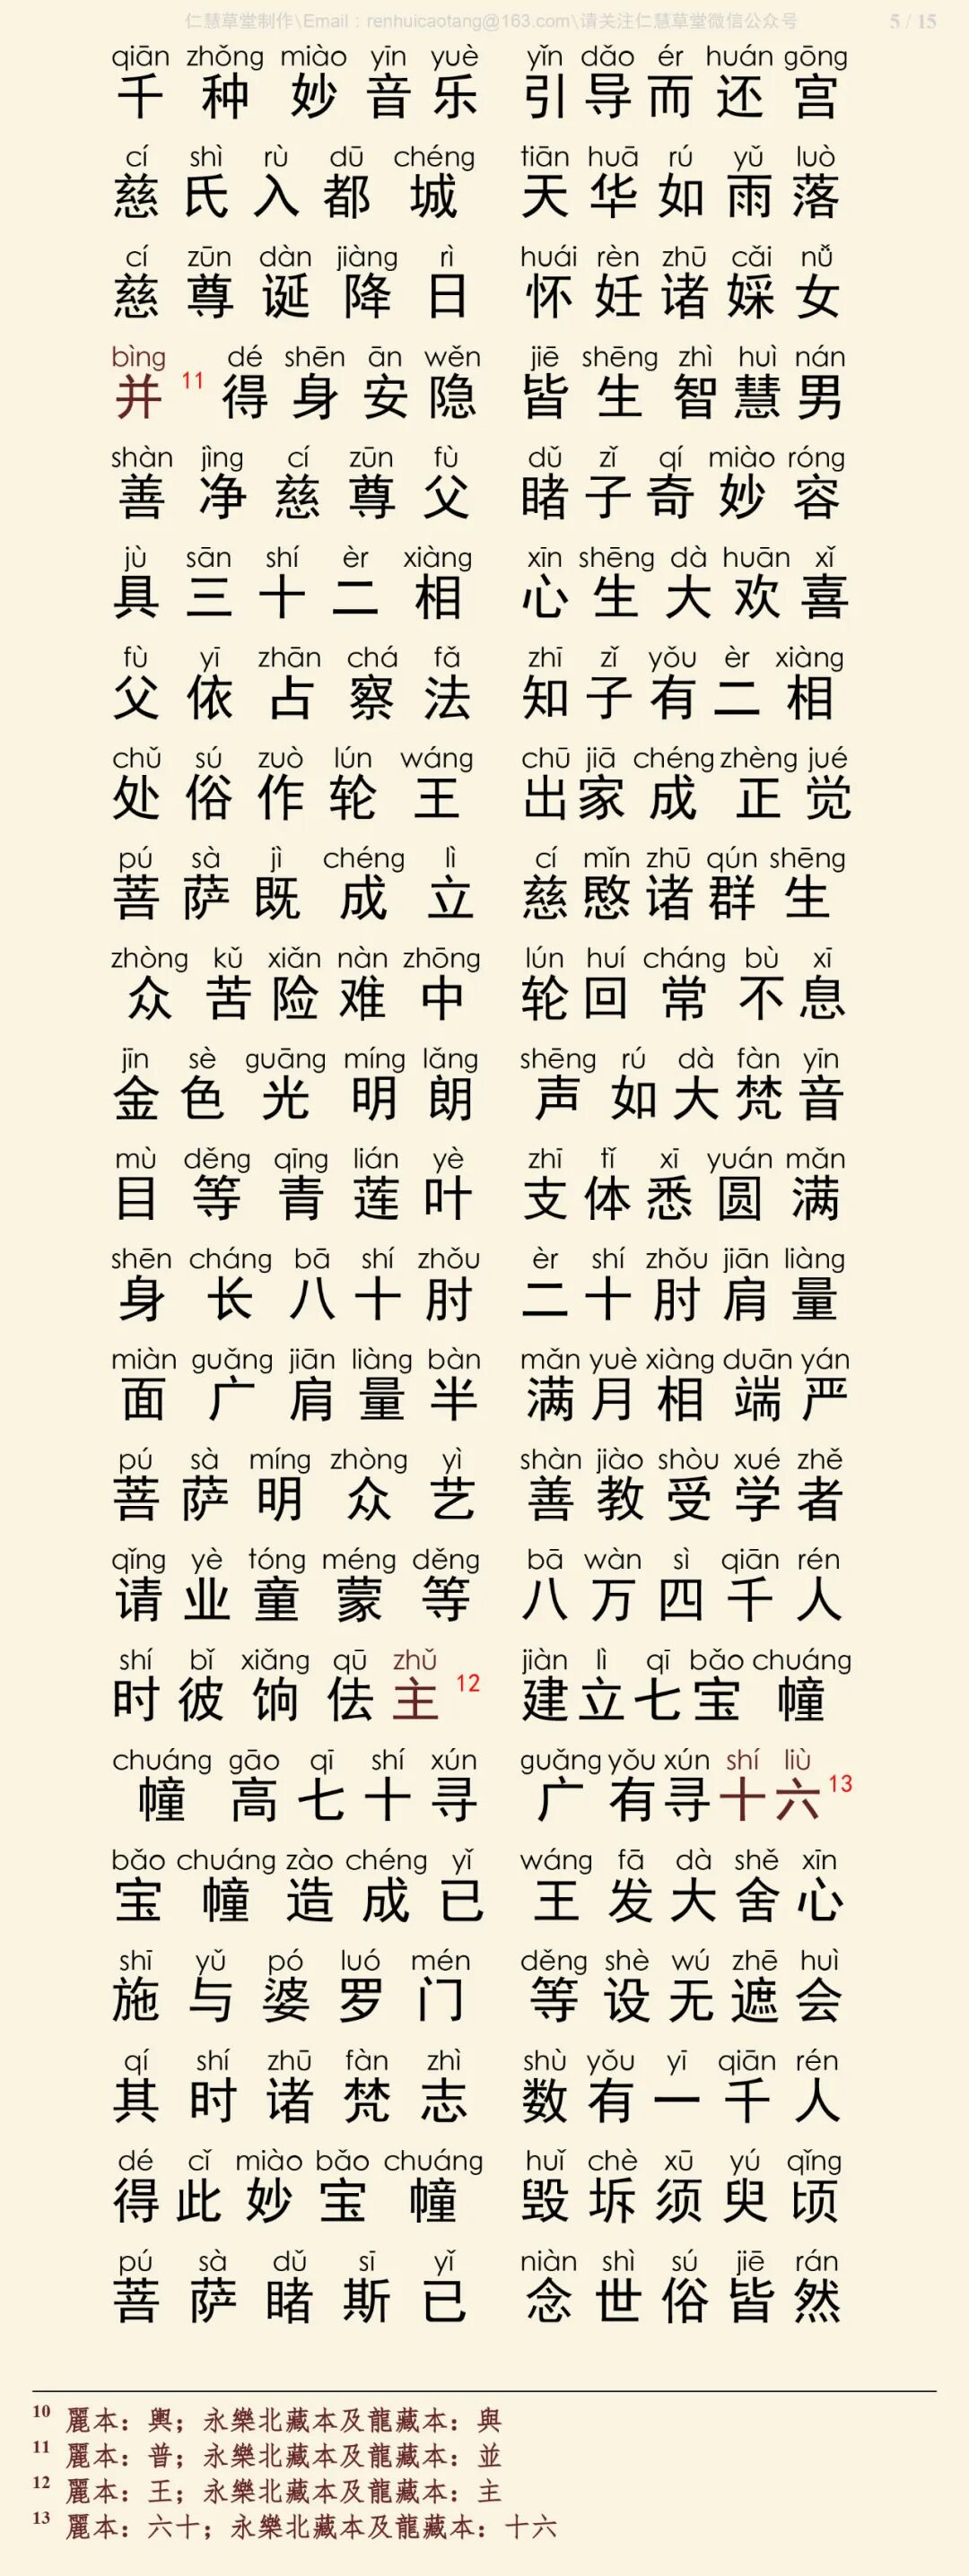 仁慧草堂制作\Email：renhuicaotang@163.com\请关注仁慧草堂微信公众号 5 / 15
qiān zhǒng miào yīn yuè yǐn dǎo ér huán gōng
千种妙音乐 引导而还宫
cí shì rù dū chéng tiān huā rú yǔ luò
慈氏入都城 天华如雨落
cí zūn dàn jiàng rì huái rèn zhū cǎi nǚ
慈尊诞降日 怀妊诸婇女
bìng dé shēn ān wěn jiē shēng zhì huì nán
并11得身安隐 皆生智慧男
shàn jìng cí zūn fù dǔ zǐ qí miào róng
善净慈尊父 睹子奇妙容
jù sān shí èr xiàng xīn shēng dà huān xǐ
具三十二相 心生大欢喜
fù yī zhān chá fǎ zhī zǐ yǒu èr xiàng
父依占察法 知子有二相
chǔ sú zuò lún wáng chū jiā chéng zhèng jué
处俗作轮王 出家成正觉
pú sà jì chéng lì cí mǐn zhū qún shēng
菩萨既成立 慈愍诸群生
zhòng kǔ xiǎn nàn zhōng lún huí cháng bù xī
众苦险难中 轮回常不息
jīn sè guāng míng lǎng shēng rú dà fàn yīn
金色光明朗 声如大梵音
mù děng qīng lián yè zhī tǐ xī yuán mǎn
目等青莲叶 支体悉圆满
shēn cháng bā shí zhǒu èr shí zhǒu jiān liàng
身长八十肘 二十肘肩量
miàn guǎng jiān liàng bàn mǎn yuè xiàng duān yán
面广肩量半 满月相端严
pú sà míng zhòng yì shàn jiào shòu xué zhě
菩萨明众艺 善教受学者
qǐng yè tóng méng děng bā wàn sì qiān rén
请业童蒙等 八万四千人
shí bǐ xiǎng qū zhǔ jiàn lì qī bǎo chuáng
时彼饷佉主12 建立七宝幢
chuáng gāo qī shí xún guǎng yǒu xún shí liù
幢高七十寻 广有寻十六13
bǎo chuáng zào chéng yǐ wáng fā dà shě xīn
宝幢造成已 王发大舍心
shī yǔ pó luó mén děng shè wú zhē huì
施与婆罗门 等设无遮会
qí shí zhū fàn zhì shù yǒu yī qiān rén
其时诸梵志 数有一千人
dé cǐ miào bǎo chuáng huǐ chè xū yú qǐng
得此妙宝幢 毁坼须臾顷
pú sà dǔ sī yǐ niàn shì sú jiē rán
菩萨睹斯已 念世俗皆然
10 麗本：輿；永樂北藏本及龍藏本：與
11 麗本：普；永樂北藏本及龍藏本：並
12 麗本：王；永樂北藏本及龍藏本：主
13 麗本：六十；永樂北藏本及龍藏本：十六